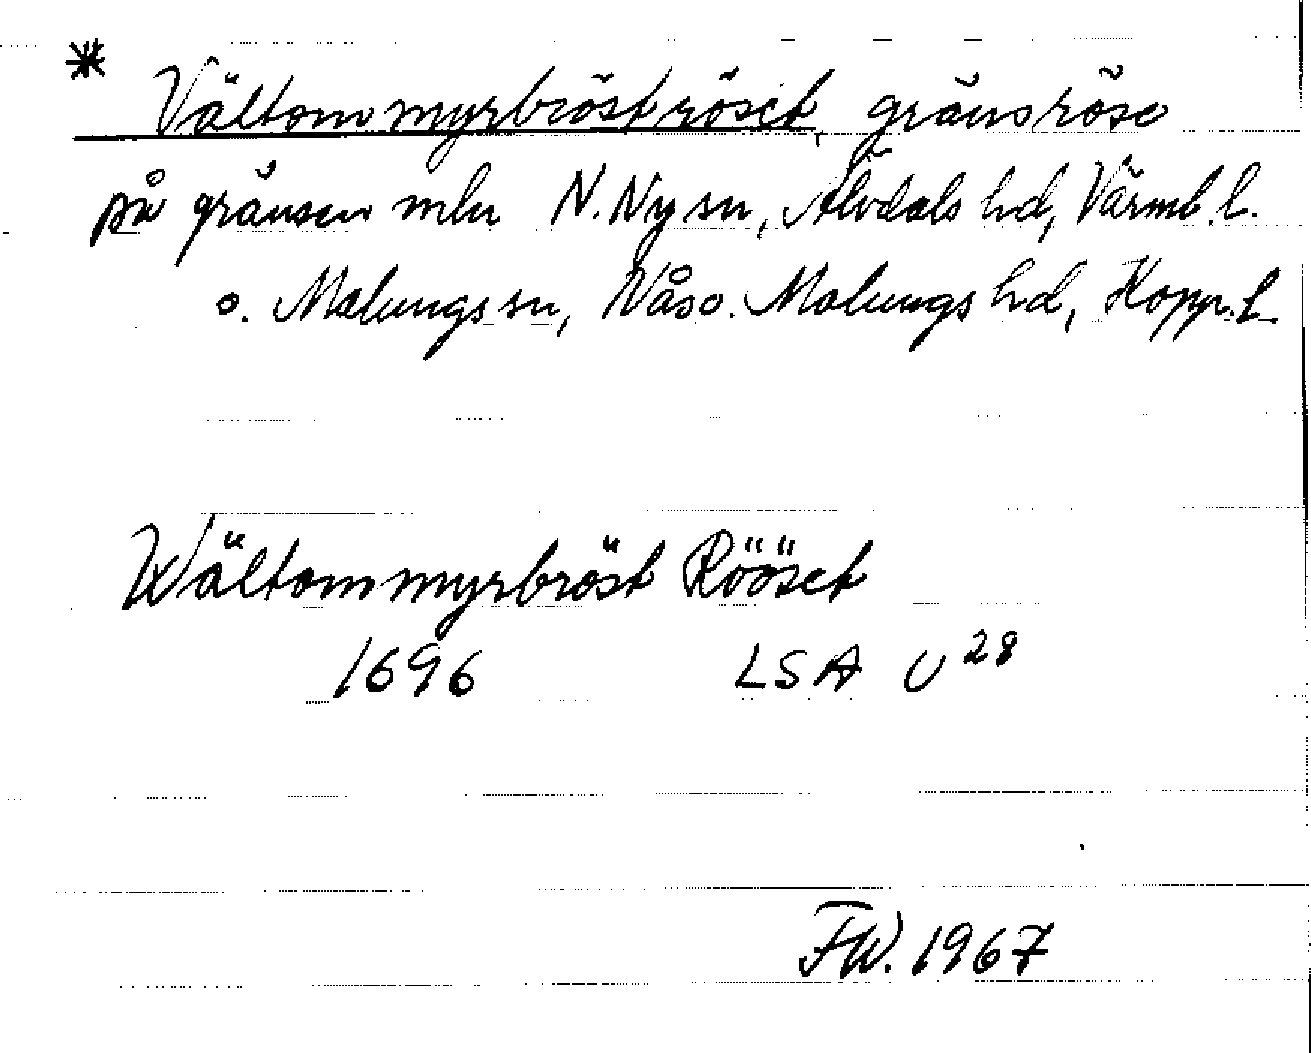 * Vältommyrbröströset, gränsröse
på gränsen mln N. Ny sn, Älvdals hd, Värml. l.
o. Malungs sn, Nås o. Malungs hd, Kopp. l.
Wältommyrbröst Rööset
1696 LSA U 28
FW. 1967